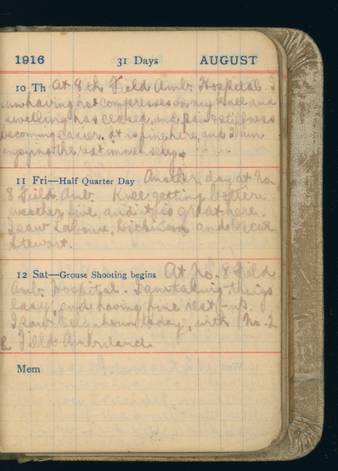 1916 31 Days AUGUST
10 Th At 8th Field Amb. Hospital. I
am having hot compresses on my knee and
swelling has ceased, and pain & stiffness
becoming easier. It is fine here, and I am
enjoying the rest
11 Fri—Half Quarter Day Another day at No.
8 Field Amb. Knee getting better.
weather fine, and it is great here.
I saw Dickinson and
Stewart.
12 Sat—Grouse Shooting begins At No. 8 Field
Amb. Hospital. I am taking things
easy, and having fine rest-up.
I saw today, with No. 2
Field Ambulance.
Mem